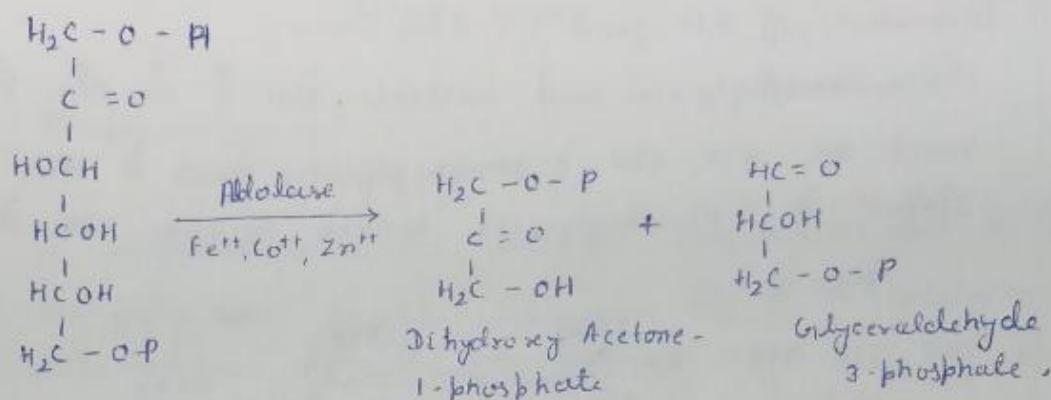 H₂C - O - P
C = O
HOCH
HCOH
HCOH
H₂C - OP
Aldolase
Fe⁺⁺, Co⁺⁺, Zn⁺⁺
H₂C - O - P
C = O
H₂C - OH
Dihydroxy Acetone -
1-phosphate
+
HC = O
HCOH
H₂C - O - P
Glyceraldehyde
3-phosphate,